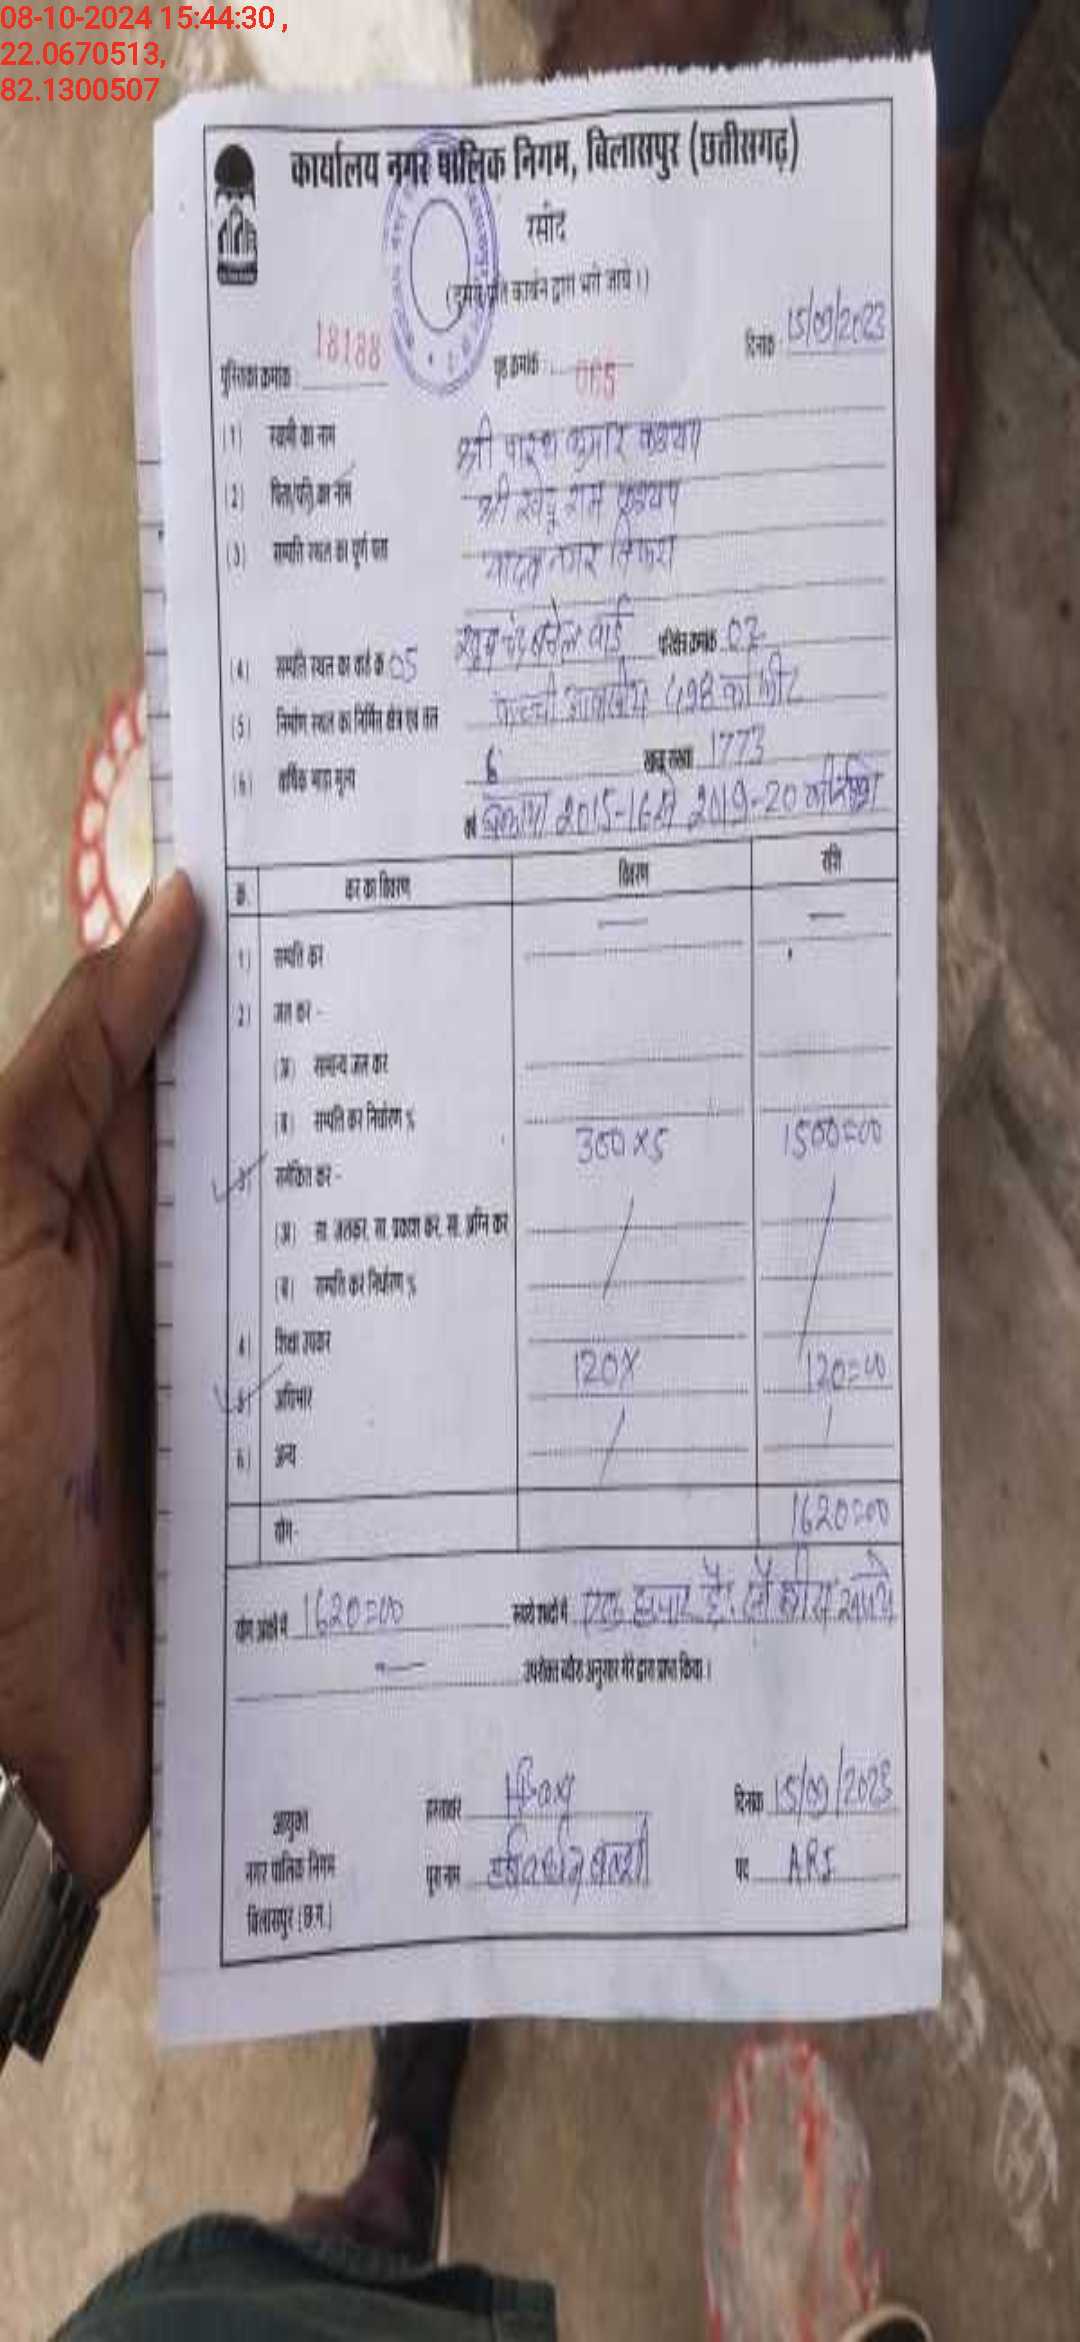 08-10-2024 15:44:30 ,
22.0670513,
82.1300507
कार्यालय नगर पालिक निगम, बिलासपुर (छत्तीसगढ़)
रसीद
पुस्तिका क्रमांक : 18188 पृष्ठ क्रमांक : 065 दिनांक : 15/09/2023
(1) स्वामी का नाम श्री पारथ कुमार कश्यप
(2) पिता/पति का नाम श्री राम कश्यप
(3) सम्पत्ति स्थल का पूर्ण पता यादव नगर तिफरा
(4) सम्पत्ति स्थल का वार्ड क्रं 05 खूब चंद बघेल वार्ड परिक्षेत्र क्रमांक 02
(5) निर्माण स्थल का निर्मित क्षेत्र एवं तल 498
(6) वार्षिक भाड़ा मूल्य 6 1773
वर्ष बकाया 2015-16 से 2019-20
क्र. कर का विवरण विवरण राशि
1) सम्पत्ति कर — —
2) जल कर -
(अ) सामान्य जल कर
(ब) सम्पत्ति कर निर्धारण %
3) समेकित कर - 300x5 1500=00
(अ) सा. जलकर, सा. प्रकाश कर, सा. अग्नि कर
(ब) सम्पत्ति कर निर्धारण %
4) शिक्षा उपकर
5) अधिभार 120x 120=00
6) अन्य
योग- 1620=00
योग अंकों में 1620=00 रूपये शब्दों में एक हजार छै. सौ बीस रूपये
उपरोक्त ब्यौरा अनुसार मेरे द्वारा प्राप्त किया ।
आयुक्त हस्ताक्षर दिनांक 15/09/2023
नगर पालिक निगम पूरा नाम पद ARI
बिलासपुर (छ.ग.)